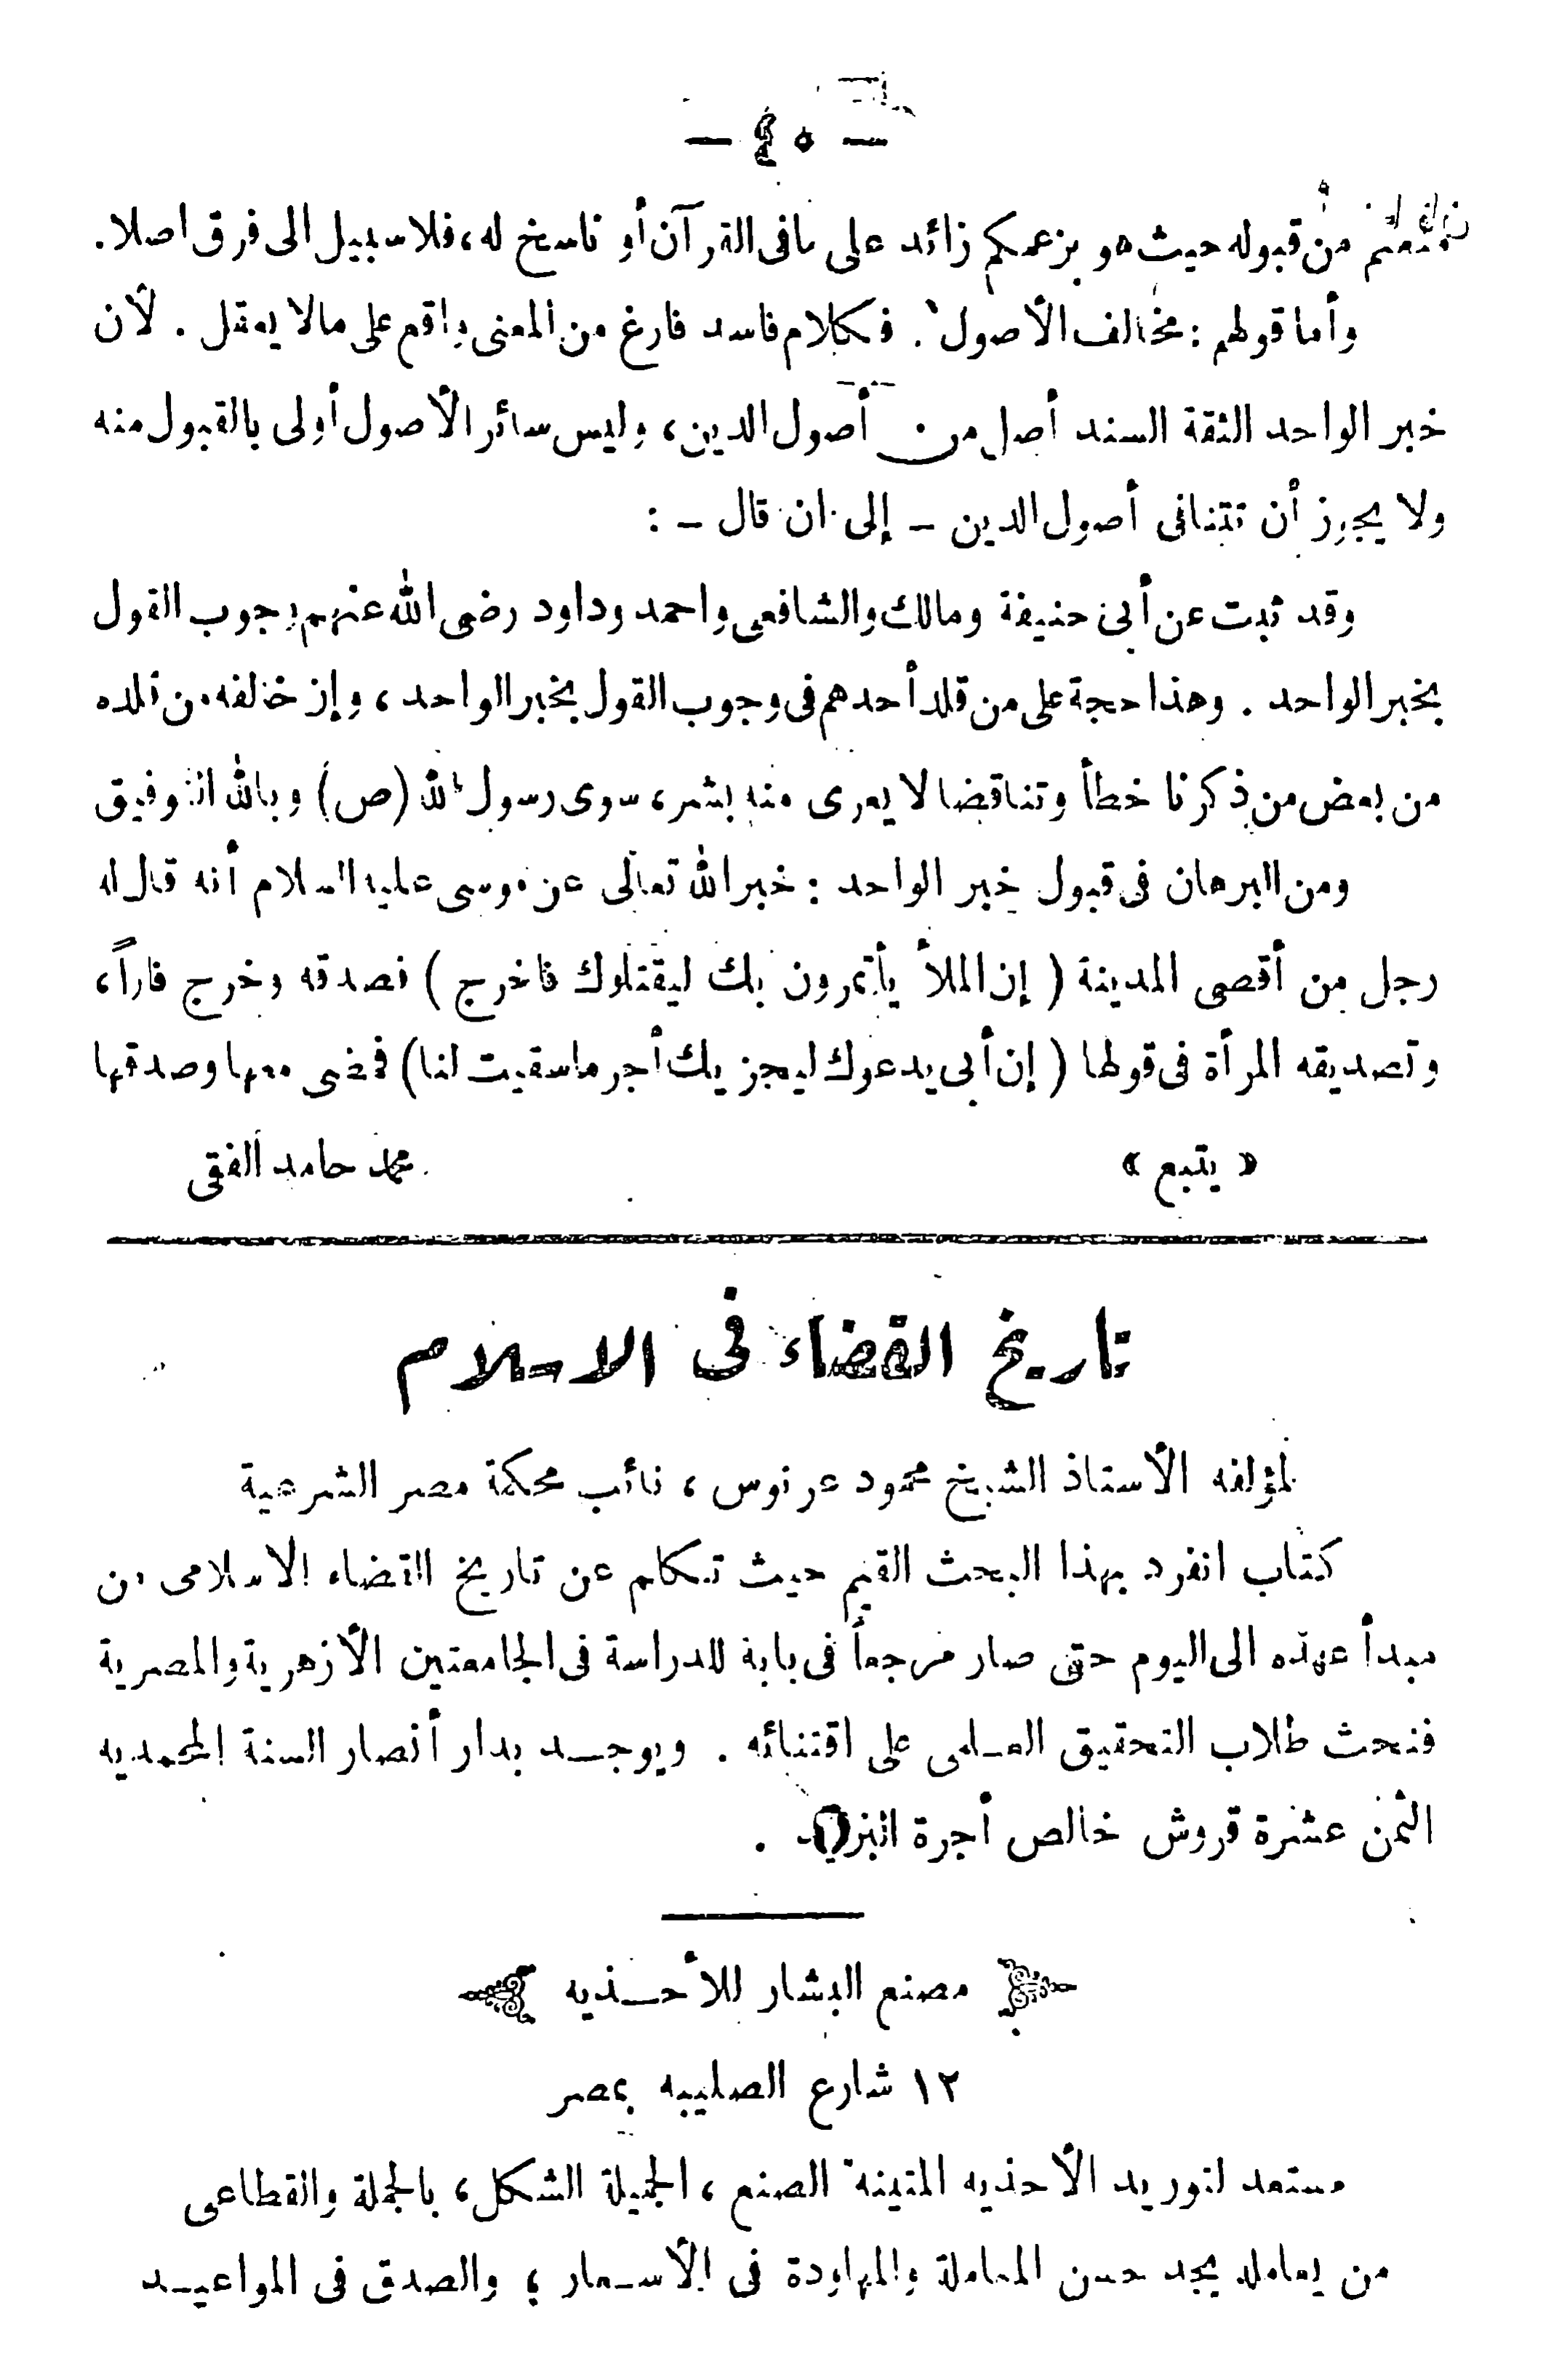 — ٤٥ —
من قبوله حيث هو بزعمكم زائد على مافى القرآن أو ناسخ له، فلا سبيل الى فرق اصلا.
وأما قولهم : مخالف الأصول . فكلام فاسد فارغ من المعنى واقع على مالا يعقل . لأن
خبر الواحد الثقة السند أصل من أصول الدين، وليس سائر الأصول أولى بالقبول منه
ولا يجوز أن تتنافى أصول الدين – إلى ان قال – :
وقد ثبت عن أبى حنيفة ومالك والشافعى واحمد وداود رضى الله عنهم وجوب القول
بخبر الواحد . وهذا حجة على من قلد أحدهم فى وجوب القول بخبر الواحد ، وإن خالفه من قلده
من بعض من ذكرنا خطأ وتناقضا لا يعرى منه بشر، سوى رسول الله (ص) وبالله التوفيق
ومن البرهان فى قبول خبر الواحد : خبر الله تعالى عن موسى عليه السلام أنه قال له
رجل من أقصى المدينة ( إن الملأ يأتمرون بك ليقتلوك فاخرج ) فصدقه وخرج فاراً،
وتصديقه المرأة فى قولها ( إن أبى يدعوك ليجزيك أجر ماسقيت لنا) فمضى معها وصدقها
« يتبع » محمد حامد الفقى
تاريخ القضاء فى الاسلام
لمؤلفه الأستاذ الشيخ محمود عرنوس ، نائب محكمة مصر الشرعية
كتاب انفرد بهذا البحث القيم حيث تكلم عن تاريخ القضاء الاسلامى من
مبدأ عهده الى اليوم حتى صار مرجعاً فى بابة للدراسة فى الجامعتين الأزهرية والمصرية
فنحث طلاب التحقيق العـلمى على اقتنائه . ويوجـد بدار أنصار السنة المحمديه
الثمن عشرة قروش خالص أجرة البريد .
مصنع البشار للأحـذيه
١٢ شارع الصليبه بمصر
مستعد لتوريد الأحذيه المتينة الصنع ، الجميلة الشكل، بالجملة والقطاعى
من يعامله يجد حسن المعاملة والمهاودة فى الأسـعار ، والصدق فى المواعيـد